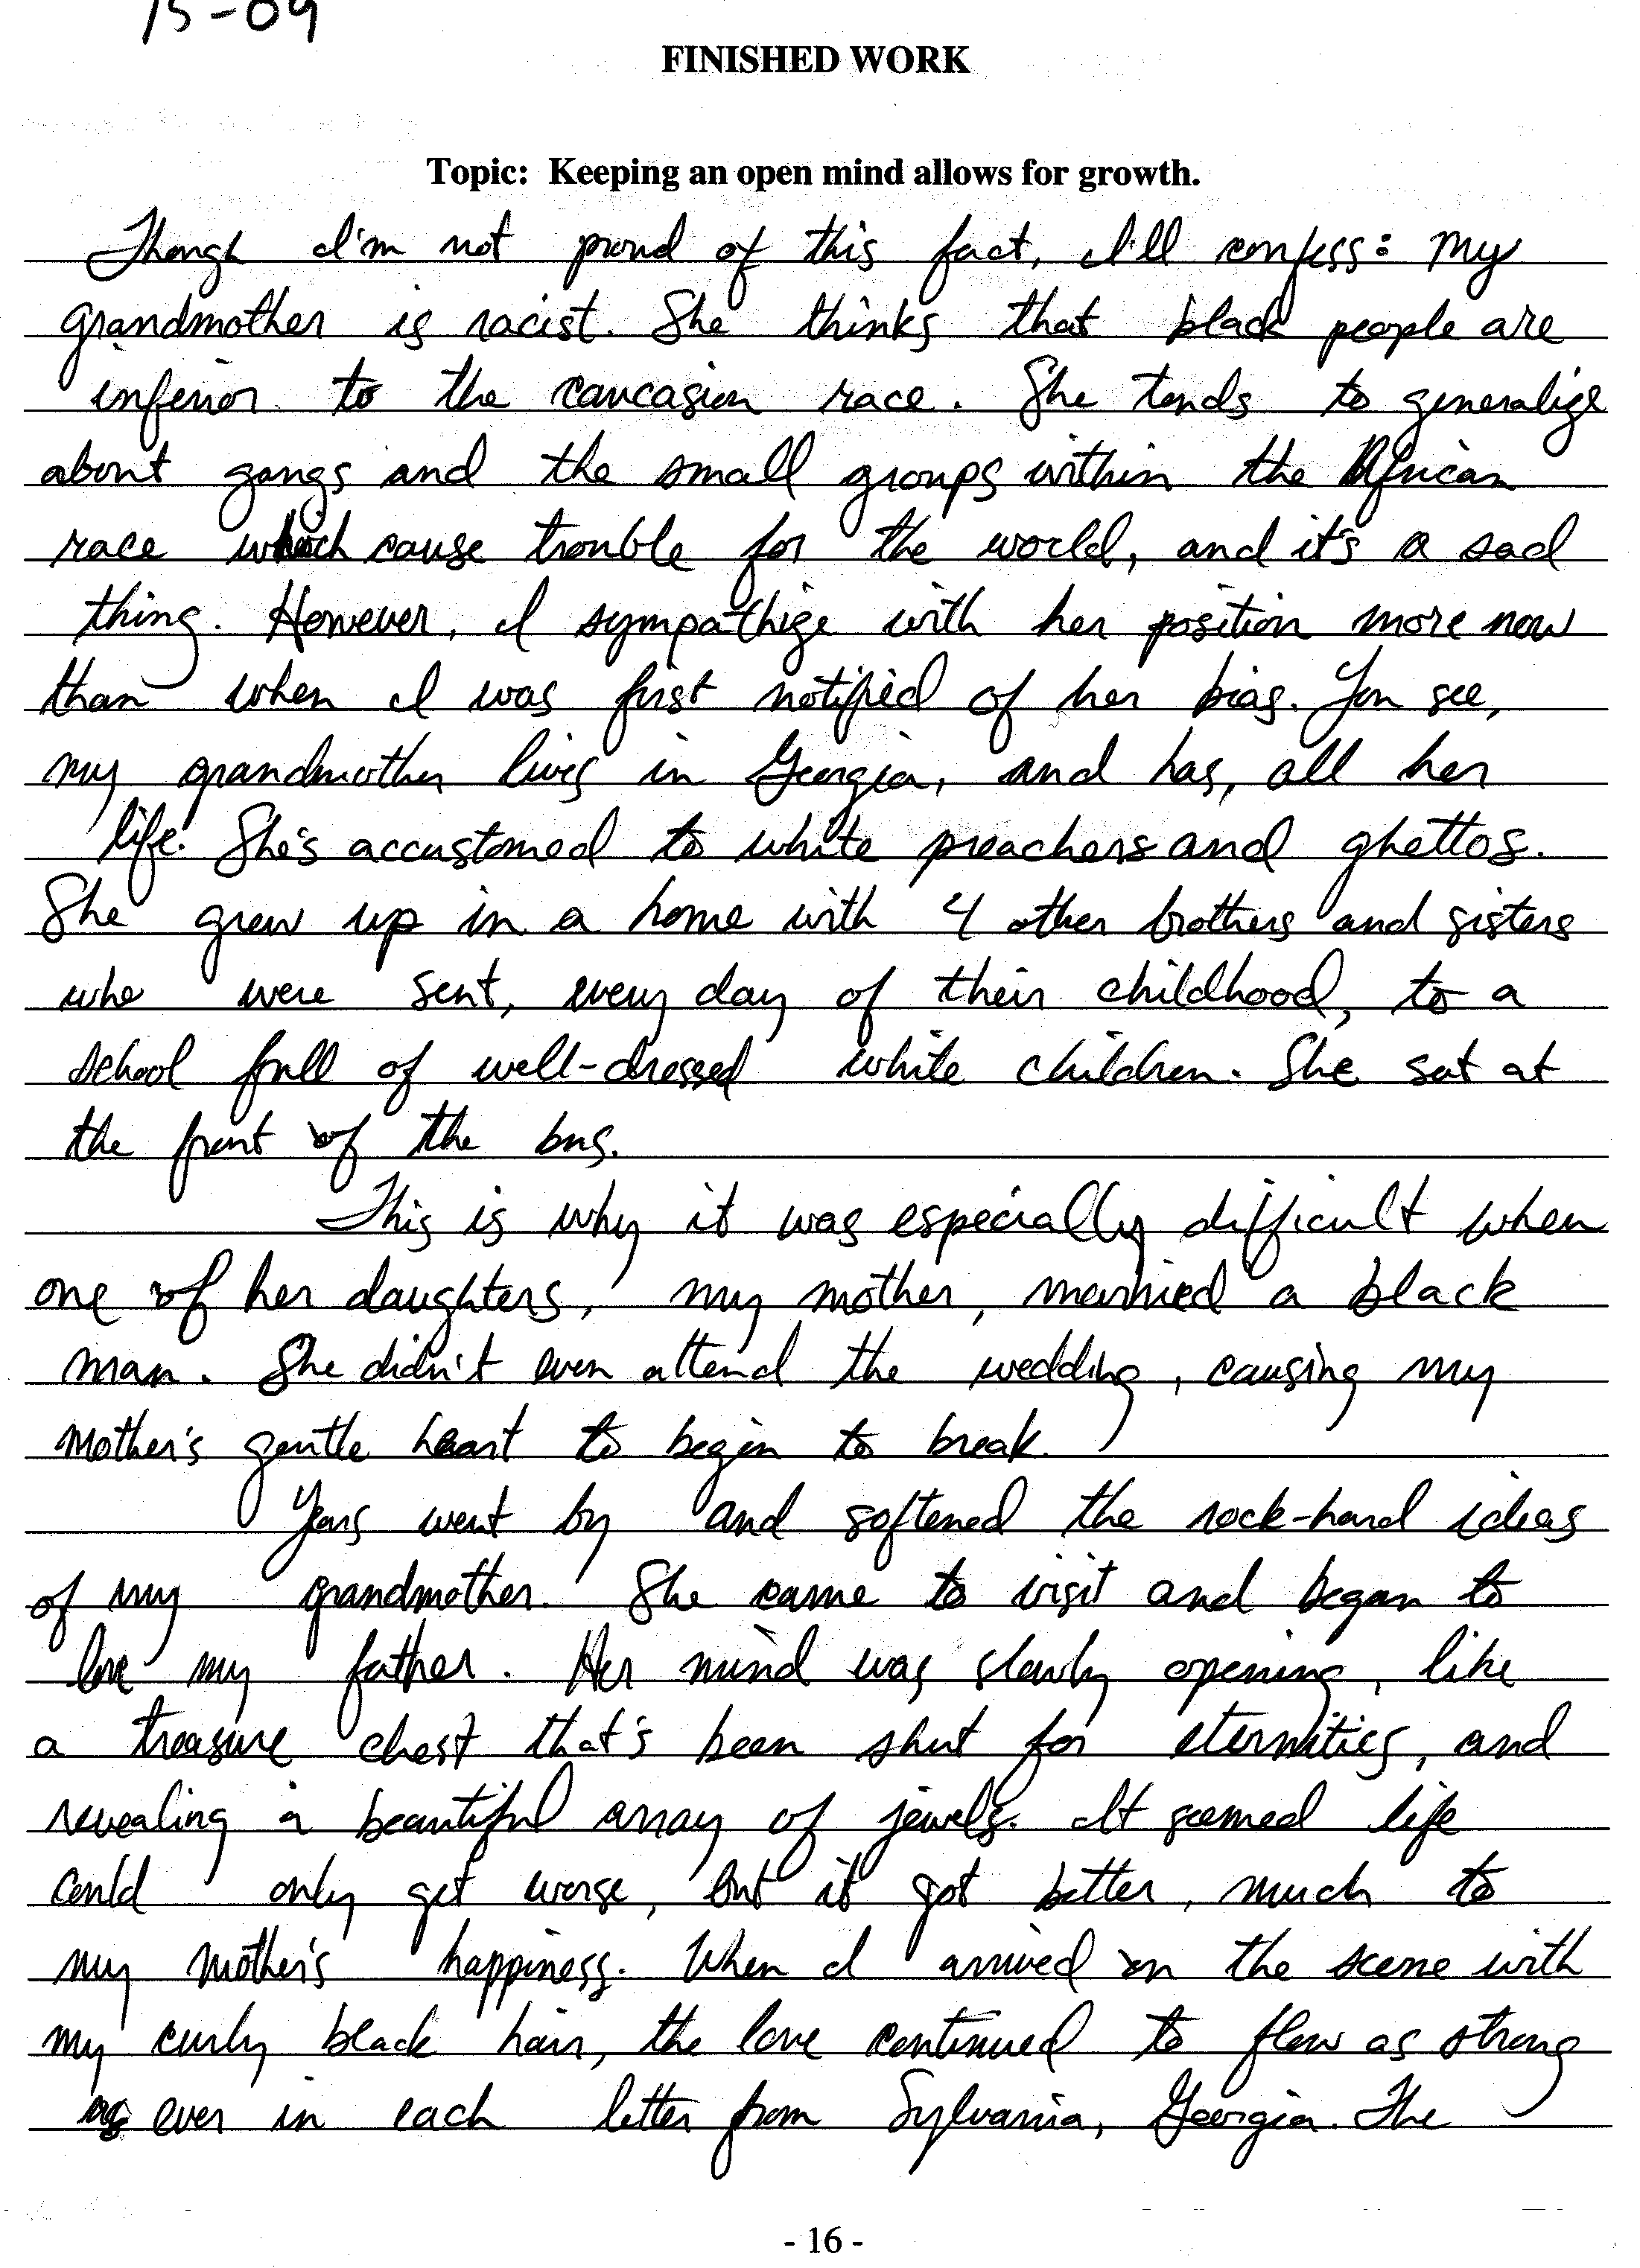 15-09
FINISHED WORK
Topic: Keeping an open mind allows for growth.
Though I'm not proud of this fact, I'll confess: my
grandmother is racist. She thinks that black people are
inferior to the caucasian race. She tends to generalize
about gangs and the small groups within the African
race which cause trouble for the world, and it's a sad
thing. However, I sympathize with her position more now
than when I was first notified of her bias. You see,
my grandmother lives in Georgia, and has, all her
life. She's accustomed to white preachers and ghettos.
She grew up in a home with 4 other brothers and sisters
who were sent, every day of their childhood, to a
school full of well-dressed white children. She sat at
the front of the bus.
This is why it was especially difficult when
one of her daughters, my mother, married a black
man. She didn't even attend the wedding, causing my
mother's gentle heart to begin to break.
Years went by and softened the rock-hard ideas
of my grandmother. She came to visit and began to
love my father. Her mind was slowly opening, like
a treasure chest that's been shut for eternities, and
revealing a beautiful array of jewels. It seemed life
could only get worse, but it got better, much to
my mother's happiness. When I arrived on the scene with
my curly black hair, the love continued to flow as strong
as ever in each letter from Sylvania, Georgia. The
- 16 -